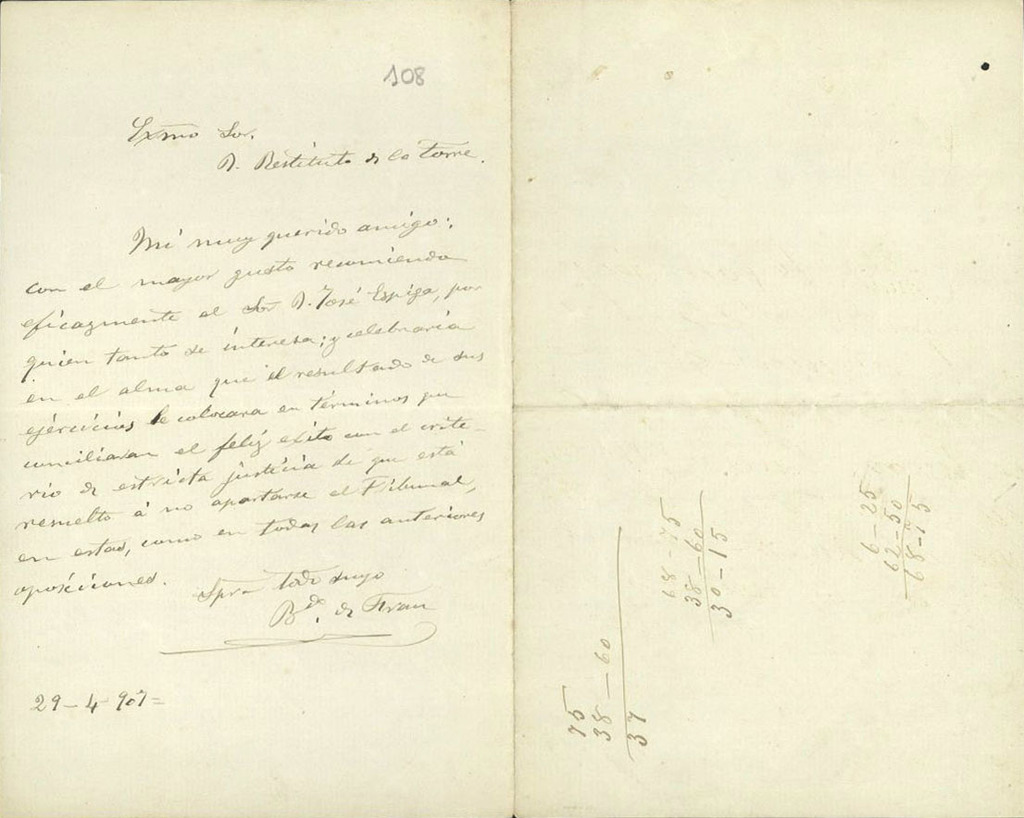 108
Exmo Sor.
D. Restituto de la Torre.
Mi muy querido amigo:
con el mayor gusto recomiendo
eficazmente al Sor D. José Espiga, por
quien tanto se interesa; y celebraria
en el alma que el resultado de sus
ejercicios le colocara en términos que
conciliaran el feliz exito con el crite-
rio de estricta justicia de que está
resuelto á no apartarse el Tribunal,
en estas, como en todas las anteriores
oposiciones.
Spre todo suyo
Bdo. de
29-4-907=
75
38-60
37
68-75
38-60
30-15
6-25
62-50
68-75